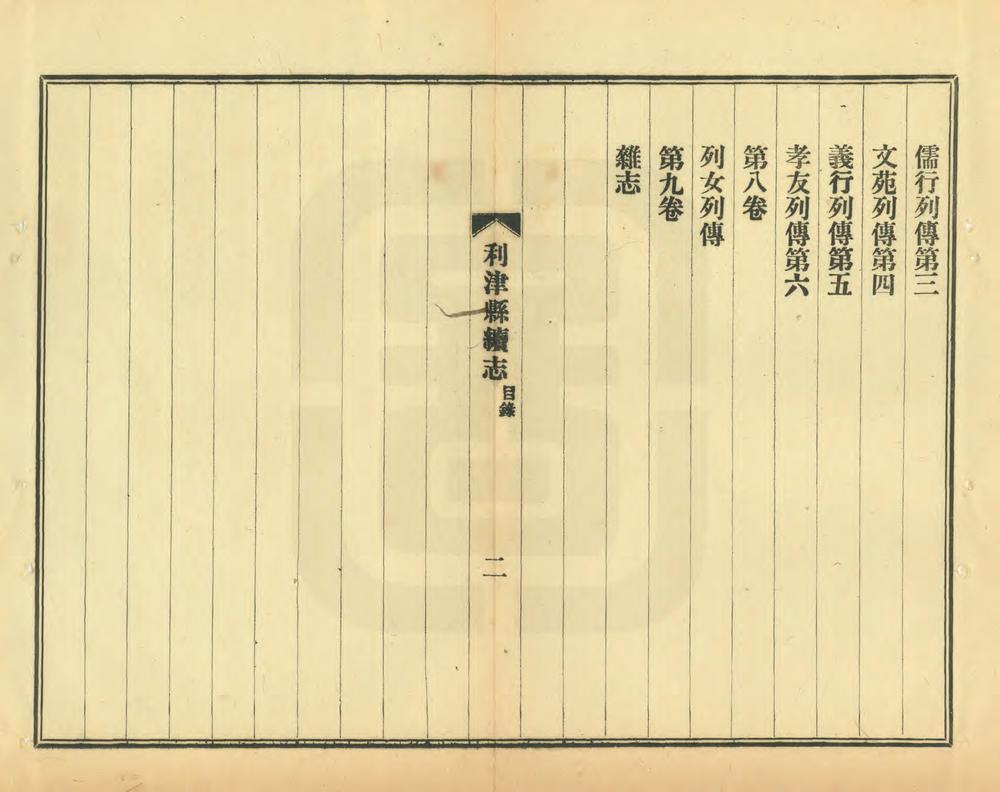 儒行列傳第三
文苑列傳第四
義行列傳第五
孝友列傳第六
第八卷
列女列傳
第九卷
雜志
利津縣續志
目錄
二